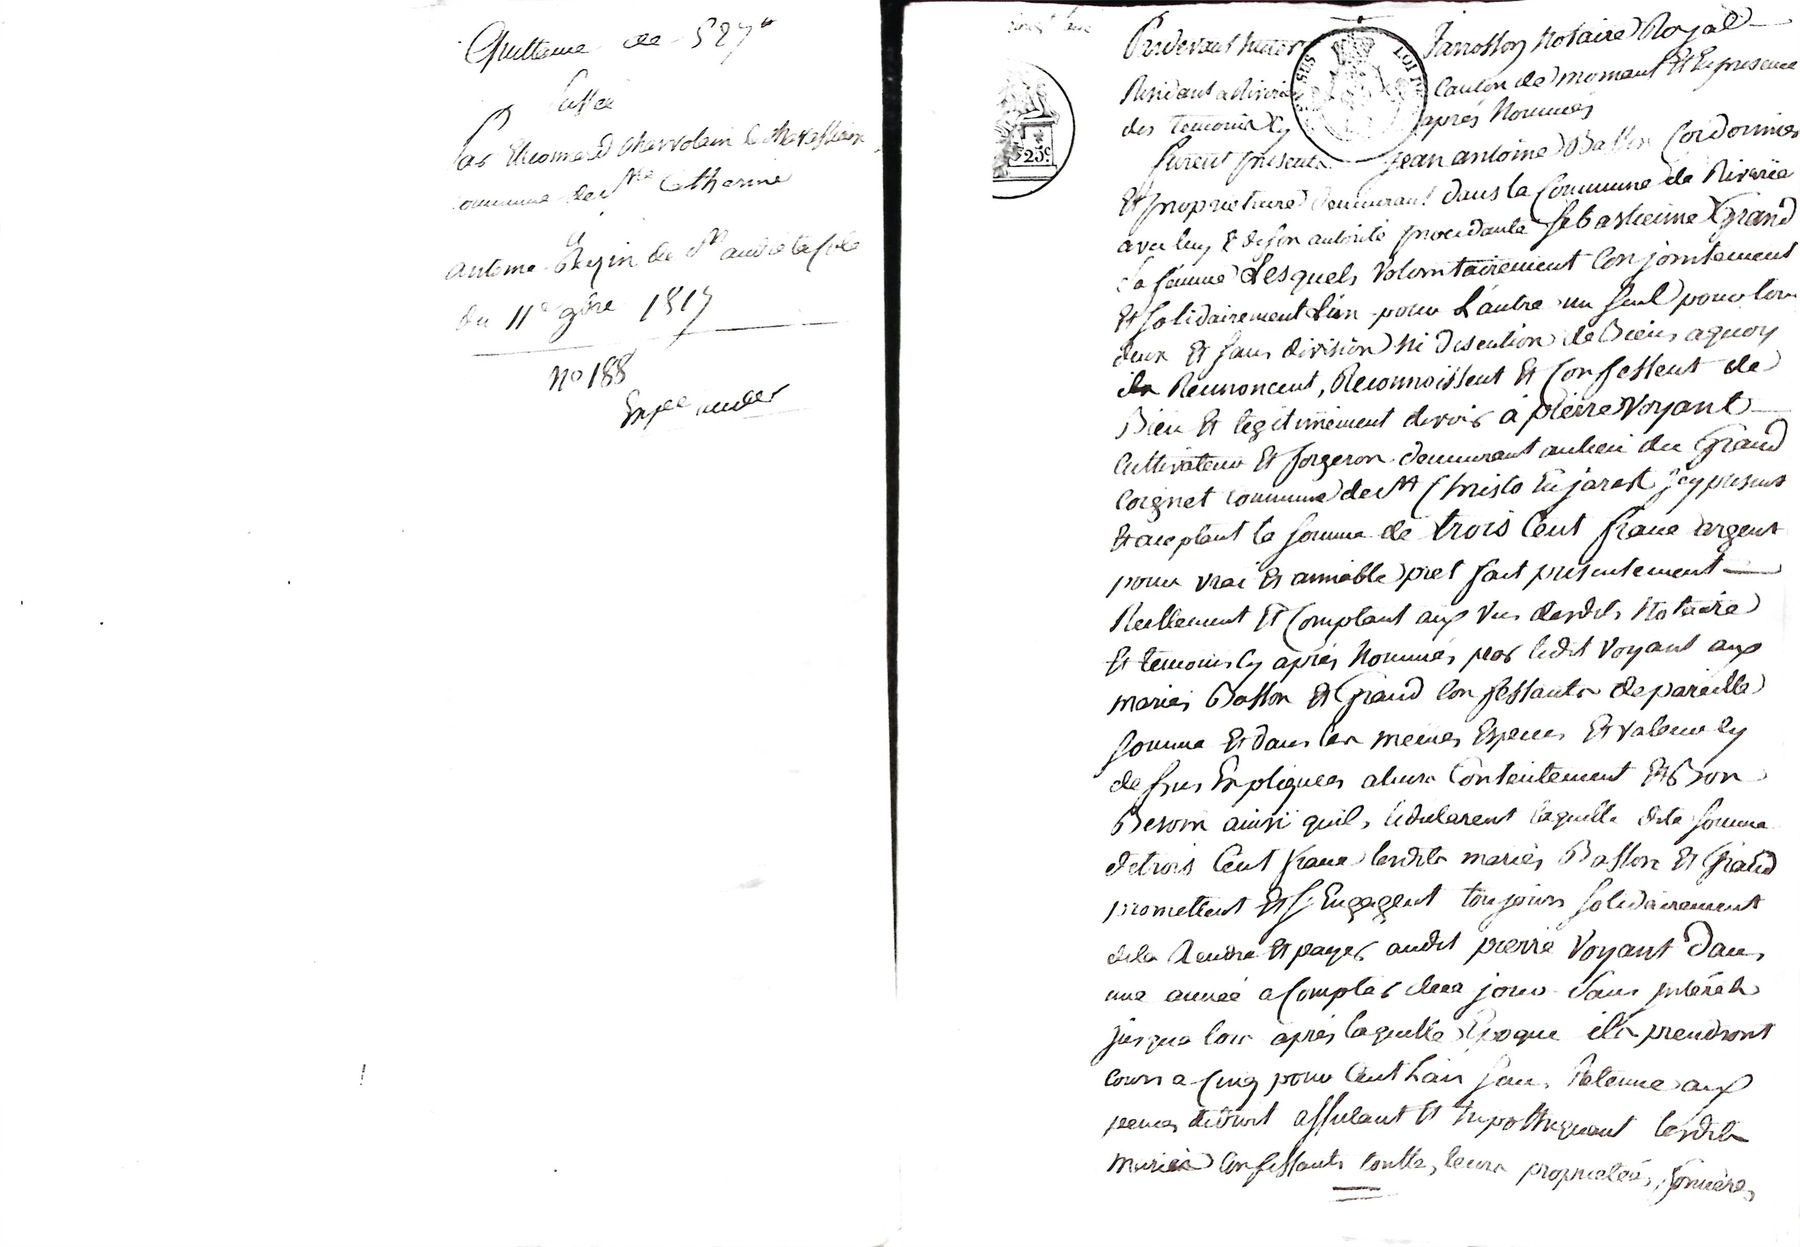 Quittance de 527#
Passée
Par Etiennard Charvolin le Chavassieux
commune de Ste Catherine
a
antoine Bazin de St andré la Cote
du 11e 9bre 1817
No 188
Expée uuder
Pardevant
Janosson Notaire Royal
Résidant a Riverie
Canton de mornant Et En presence
des temoins Cy
après Nommés
furent presents
Jean antoine Basson Cordonnier
Et proprietaire demeurant dans la Commune de Riverie
avec luy & de son autorité procédante Sebastienne Grand
Sa femme Lesquels volontairement Conjointement
Et solidairement L'un pour L'autre un seul pour les
deux Et sans division Ni discution de Biens aquoy
ils Renoncent, Reconnoissent Et Confessent de
Bien Et légitimement devoir à pierre Voyant
Cultivateur Et forgeron demeurant au lieu du Grand
Coignet commune de St Christo En jarest Jcy present
Et acceptant la somme de trois Cent franc argent
pour vrai Et amiable pret fait presentement
Reellement Et Comptant aux vus desdits Notaire
Et temoins Cy après Nommés par ledit Voyant aux
mariés Basson Et Grand Confessants de pareille
somme Et dans les memes Especes Et valeur Cy
dessus Expliquées a leurs Contentement Et Bon
Besoin ainsi qu'ils le déclarent laquelle dite somme
de trois Cent franc lesdits mariés Basson Et Grand
promettent Et s'Engagent toujours solidairement
de la Rendre Et payer audit pierre Voyant Dans
une année a Compter de ce jour sans jntérêts
jusqua lors après laquelle Epoque ils prendront
Cours a Cinq pour Cent L'an sans Retenue aux
peines de droit affectant Et hypothequant lesdits
mariés Confessants toutte, leurs proprietés, foncières,